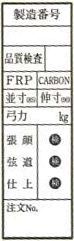 製造番号
品質検査
FRP CARBON
並寸(85) 伸寸(90)
弓力 kg
張顔 様
弦道 様
仕上 様
注文No.